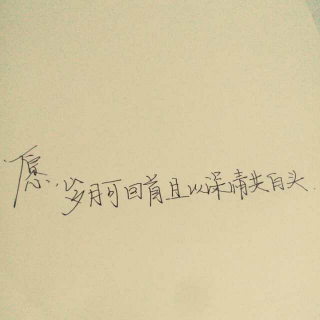 愿.岁月可回首且以深情共白头.